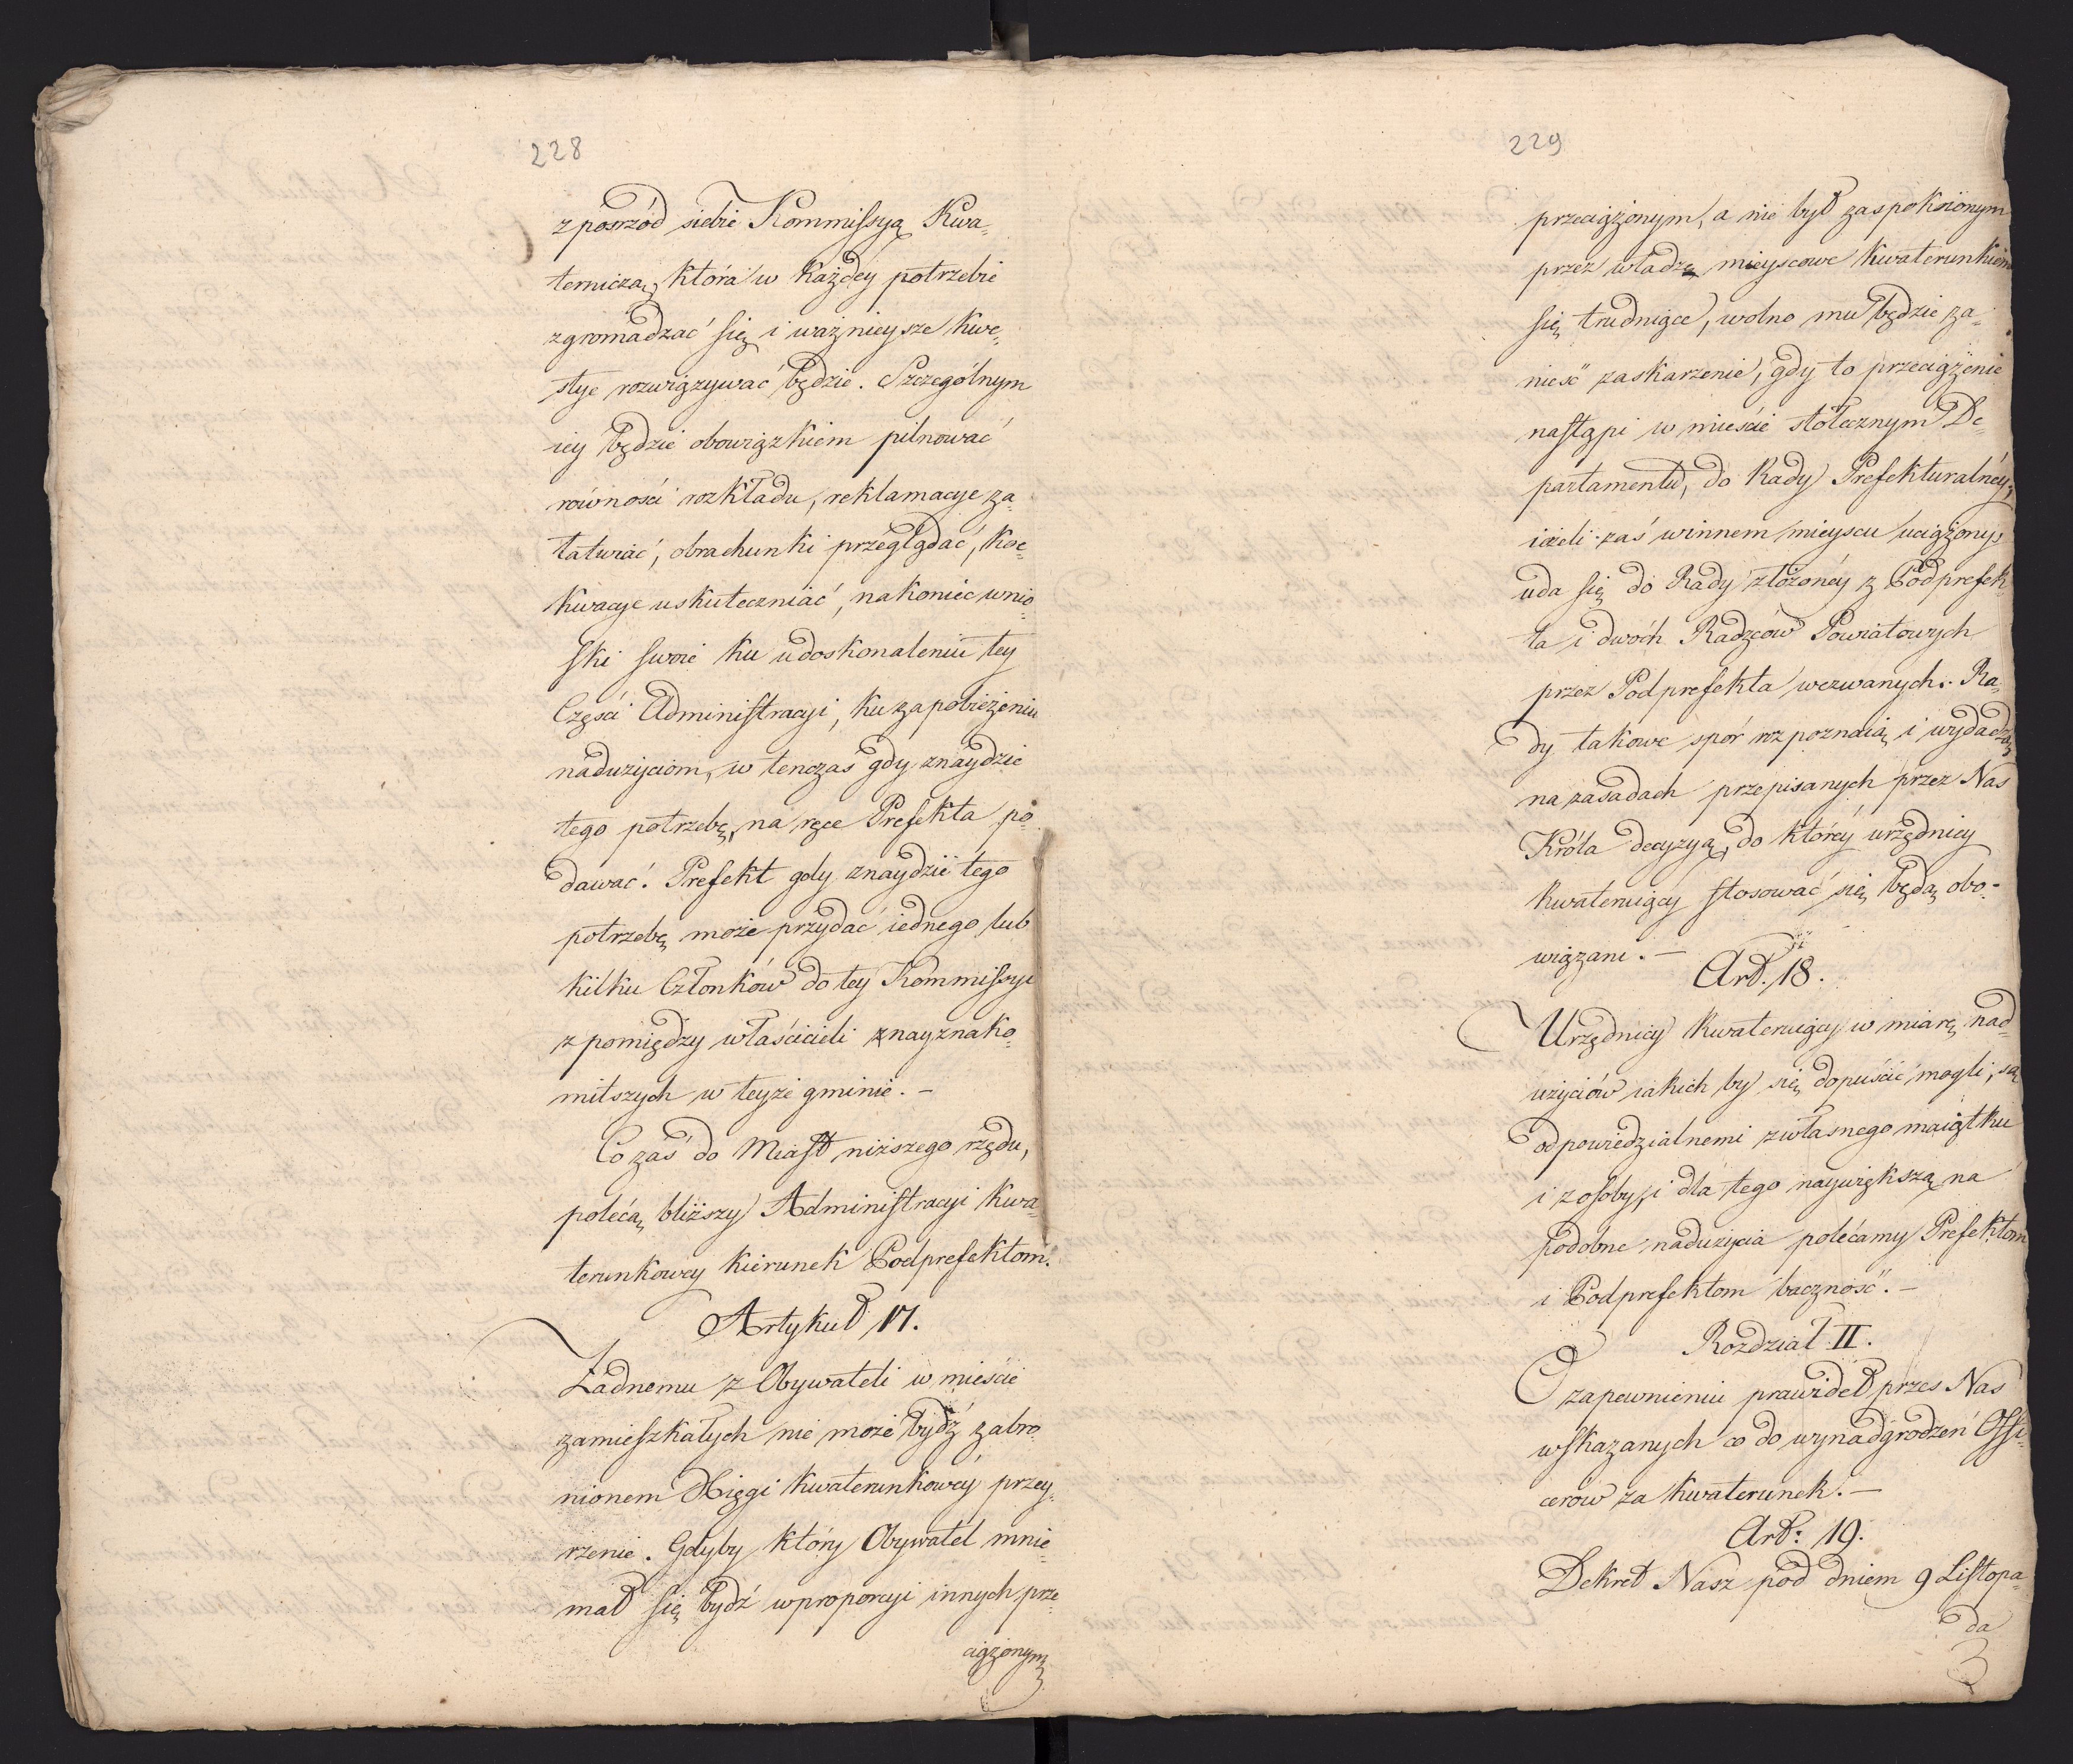 228
z pośrzód siebie Kommissyą Kwa-
terniczą, która w każdey potrzebie
zgromadzać się i ważnieysze kwe-
stye rozwiązywać będzie. Szczególnym
iey będzie obowiązkiem pilnować
równości rozkładu, reklamacye za-
łatwiać, obrachunki przeglądać, koe-
kwacye uskuteczniać, nakoniec wnio-
ski swoie ku udoskonaleniu tey
Części Administracyi, ku zapobieżeniu
nadużyciom, w tenczas gdy znaydzie
tego potrzebę, na ręce Prefekta po-
dawać. Prefekt gdy znaydzie tego
potrzebę może przydać iednego lub
kilku Członków do tey Kommissyi
z pomiędzy właścicieli znayznako-
mitszych w teyże gminie. —
Co zaś do Miast niższego rzędu,
polecą bliższy Administracyi kwa-
terunkowey kierunek Podprefektom.
Artykuł 17.
Żadnemu z Obywateli w mieście
zamieszkałych nie może bydź zabro-
nionem Xięgi kwaterunkowey przey-
rzenie. Gdyby który Obywatel mnie-
mał się bydź w proporcyi innych prze-
ciążonym
229
przeciążonym, a nie był zaspokoionym
przez władzę mieyscowe kwaterunkiem
się trudniące, wolno mu będzie za-
nieść zaskarzenie, gdy to przeciążenie
nastąpi w mieście stołecznym De-
partamentu, do Rady Prefekturalnéy,
ieżeli zaś w innem mieyscu uciążony,
uda się do Rady złożonéy z Podprefek
ta i dwóch Radzców Powiatowych
przez Podprefekta wezwanych. Ra-
dy takowe spór rozpoznaią i wydadzą
na zasadach przepisanych przez Nas
Króla decyzyą, do któréy urzędnicy
kwateruiący stosować się będą obo-
wiązani. —
Art. 18.
Urzędnicy kwateruiący w miarę nad-
użyciów iakich by się dopuścić mogli, są
odpowiedzialnemi z własnego maiątku
i z osoby, i dla tego naywiększą na
podobne nadużycia polecamy Prefektom
i Podprefektom baczność. —
Rozdział II.
O zapewnieniu prawideł przez Nas
wskazanych co do wynadgrodzeń Offi-
cerów za kwaterunek. —
Art: 19.
Dekret Nasz pod dniem 9 Listopa-
da